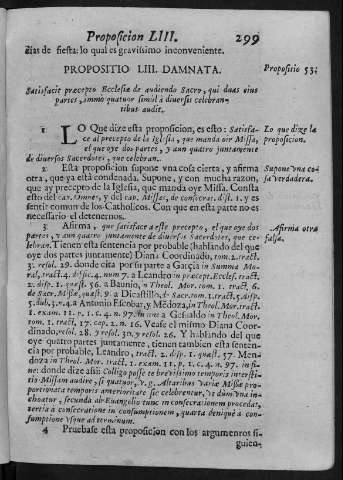 Proposicion LIII. 299
dias de fiesta: lo qual es gravissimo inconveniente.
PROPOSITIO LIII. DAMNATA.
Propositio 53.
Satisfacit precepto Ecclesiæ de audiendo Sacro, qui duas eius
partes, immo quatuor simul à diversis celebran,
tibus audit.
1 LO Que dize esta proposicion, es esto: Satisfa-
ce al precepto de la Iglesia, que manda oir Missa,
el que oye dos partes, y aun quatro juntamente
de diversos Sacerdotes, que celebran.
Lo que dize la
proposicion.
2 Esta proposicion supone vna cosa cierta, y afirma
otra, que ya està condenada. Supone, y con mucha razon,
que ay precepto de la Iglesia, que manda oye Missa. Consta
esto del cap. Omnes, y del cap. Missas, de consecrat. dist. 1. y es
sentir comun de los Catholicos. Con que en esta parte no es
necessario el detenernos.
Supone vna co
sa verdadera.
3 Afirma, que satisface a este precepto, el que oye dos
partes, y aun quatro juntamente de diversos Sacerdotes, que ce-
lebran. Tienen esta sentencia por probable (hablando del que
oye dos partes juntamente) Diana Coordinado, tom. 2. tract.
3. resol. 29. donde cita por su parte a Garcia in Summa Mo-
ral, tract. 4. dific. 4. num 7. a Leandro in præcept. Eccles. tract.
2. disp. 1. quæst. 56. a Baunio, in Theol. Mor. tom. 1. tract. 6.
de Sacr. Missæ, quæst. 9. a Dicastillo, de Sacr. tom. 1. tract. 5. disp.
5. dub. 3. n. 4. a Antonio Escobar, y Mendoza, in Theol. Mor. tract.
1. exam. 11. p. 1. c. 4. n. 97. in fine a Gesualdo in Theol. Mor.
tom. 1. tract. 17. cap. 2. n. 16. Vease el mismo Diana Coor-
dinado, resol. 28. 3 resol. 30. y resol. 26. Y hablando del que
oye quatro partes juntamente, tienen tambien esta senten-
cia por probable, Leandro, tract. 2. disp. 1. quæst. 57. Men-
doza in Theol. Mor. tract. 1. exam. 11. p. 1. c. 4. n. 97. in fi-
ne: donde dize assi: Colligo posse te brevissimo temporis intersti-
tio Missam audire, si quatuor, v. g. Altaribus variæ Missæ pro-
portionata temporis anterioritate sic celebrentur, vt dum vna in-
choatur, secunda ab Euangelio tunc in consecrationem procedat,
tertia a consecratione in consumptionem, quarta denique à con-
sumptione vsque ad terminum.
Afirma otra
falsa.
4 Pruebase esta proposicion con los argumentos si-
guien-